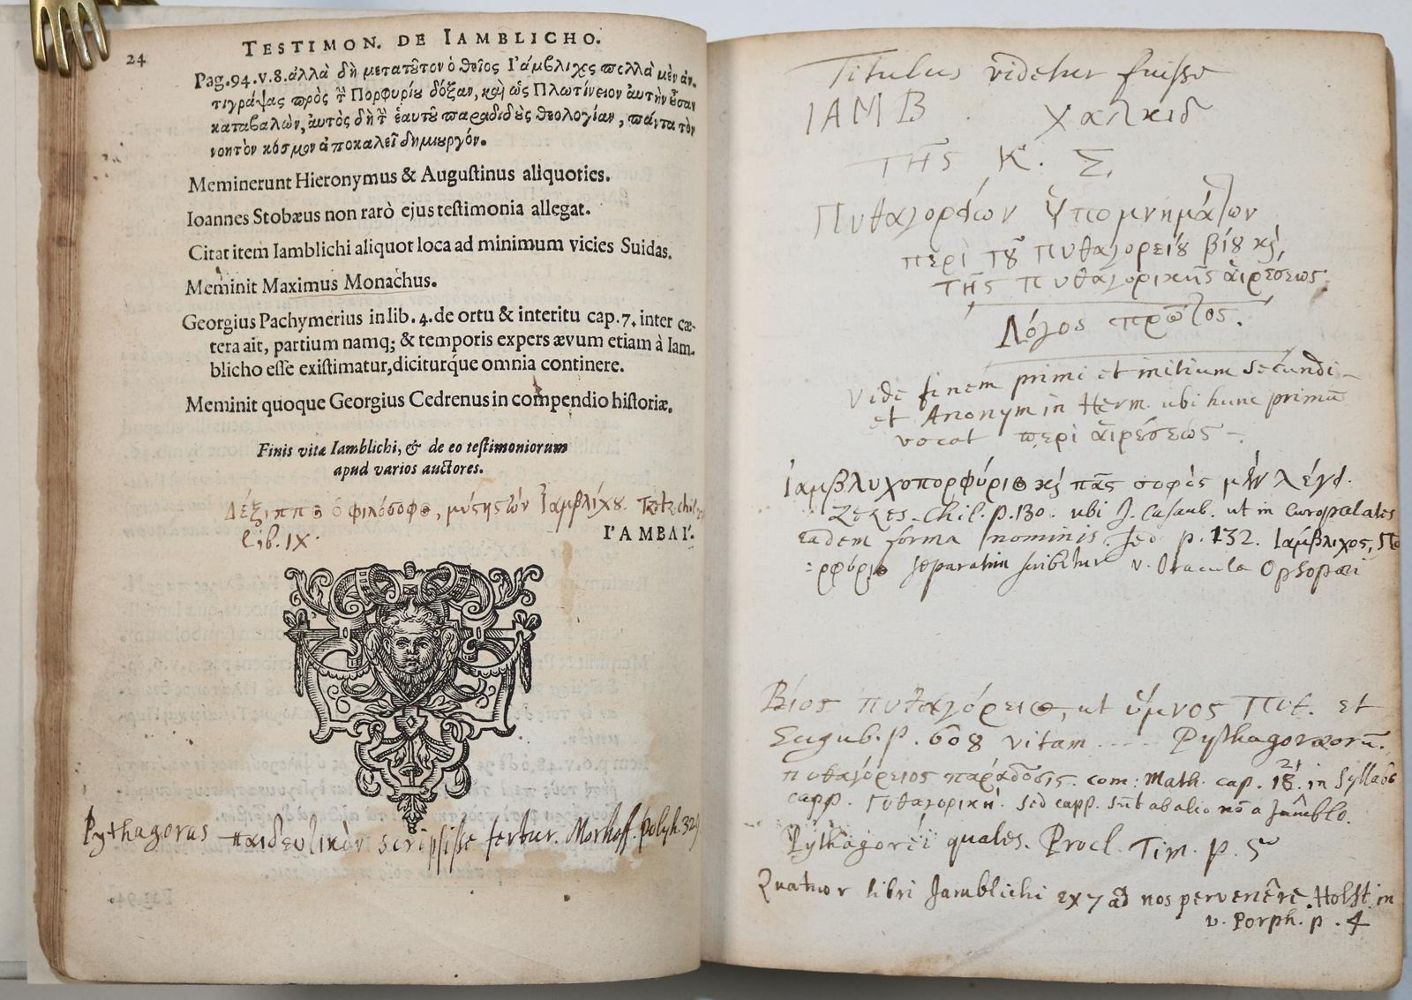 24
TESTIMON. DE IAMBLICHO.
Pag. 94. v. 8. ἀλλὰ δὴ μετὰ τοῦτον ὁ θεῖος Ἰάμβλιχος πολλὰ μὲν ἀν-
τιγράψας πρὸς τὴν Πορφυρίου δόξαν, καὶ ὡς Πλωτίνειον αὐτὴν οὖσαν
καταβαλὼν, αὐτὸς δὴ τὴν ἑαυτοῦ παραδιδοὺς θεολογίαν, πάντα τὸν
νοητὸν κόσμον ἀποκαλεῖ δημιουργόν.
Meminerunt Hieronymus & Augustinus aliquoties.
Ioannes Stobæus non rarò ejus testimonia allegat.
Citat item Iamblichi aliquot loca ad minimum vicies Suidas.
Meminit Maximus Monachus.
Georgius Pachymerius in lib. 4. de ortu & interitu cap. 7. inter cæ-
tera ait, partium namq; & temporis expers ævum etiam à Iam-
blicho esse existimatur, diciturque omnia continere.
Meminit quoque Georgius Cedrenus in compendio historiæ.
Finis vitæ Iamblichi, & de eo testimoniorum
apud varios auctores.
Δέξιππος ὁ φιλόσοφος, μύστης τῶν Ἰαμβλίχου Tzetz. chil.
Lib. IX.
ἸΑΜΒΛΙ'.
Pythagoras παιδευτικὸν scripsisse fertur. Morhoff. polyh. 324
Titulus videtur fuisse
ΙΑΜΒ. Χαλκιδ
τῆς Κ. Σ.
Πυθαγορείων Ὑπομνημάτων
περὶ τοῦ πυθαγορείου βίου καὶ
τῆς πυθαγορικῆς αἱρέσεως
Λόγος πρῶτος.
Vide finem primi et initium secundi
et Anonym in Herm. ubi hunc primū
vocat περὶ αἱρέσεως
Ἰαμβλυχοπορφύριος καὶ πᾶς σοφὸς μὲν λέγει.
Zezes. Chil. p. 130. ubi J. Casaub. ut in Curopalates
eadem forma nominis sed p. 132. Ἰάμβλιχος, Πο
=ρφύριος separatim scribitur v. Oracula Opsopœi
Βίος πυθαγόρειος, ut ὕμνος Πυθ. et
Eugub. p. 608 vitam .... Pythagoræorū.
πυθαγόρειος παράδοσις. com. Math. cap. 18. 21 in Syllabo
capp. Πυθαγορική. sed capp. sūt ab alio nō a Jamblo.
Pythagorei quales. Procl. Tim. p. 5
Quatuor libri Jamblichi ex 7 ad nos pervenēre. Holst. in
v. Porph. p. 4